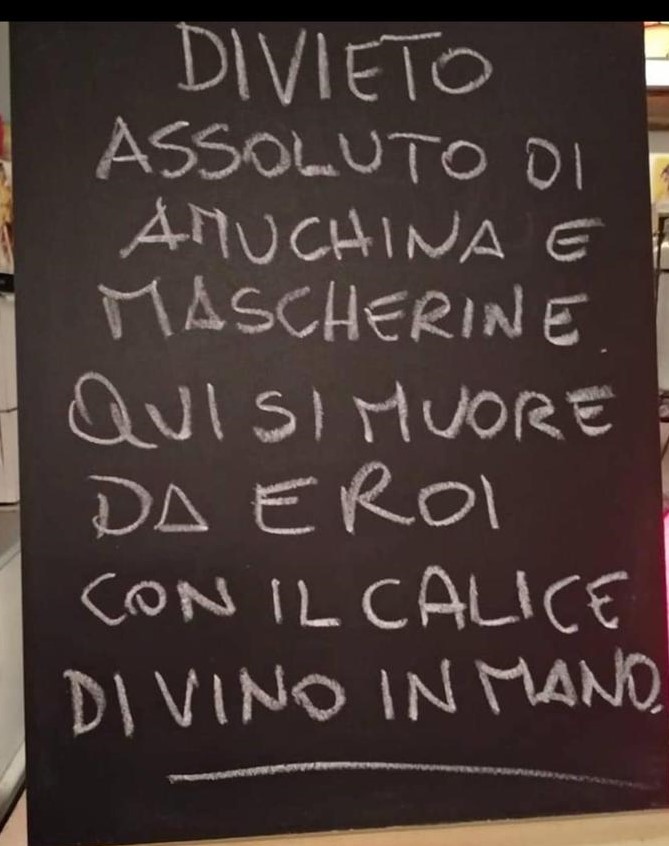 DIVIETO
ASSOLUTO DI
AMUCHINA E
MASCHERINE
QUI SI MUORE
DA EROI
CON IL CALICE
DI VINO IN MANO.